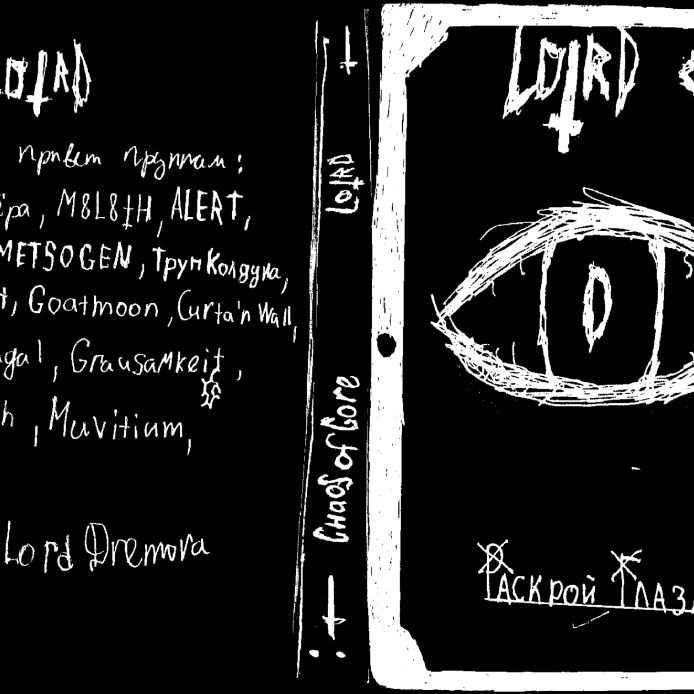 LOTRD
привет группам:
ёра, M8L8TH, ALERT,
METSOGEN, Труп Колдуна,
t, Goatmoon, Curta'n Wall,
gal, Grausamkeit,
h, Muvitium,
Lord Dremora
LOTRD
Chaos of Gore
LOTRD
Раскрой Глаза